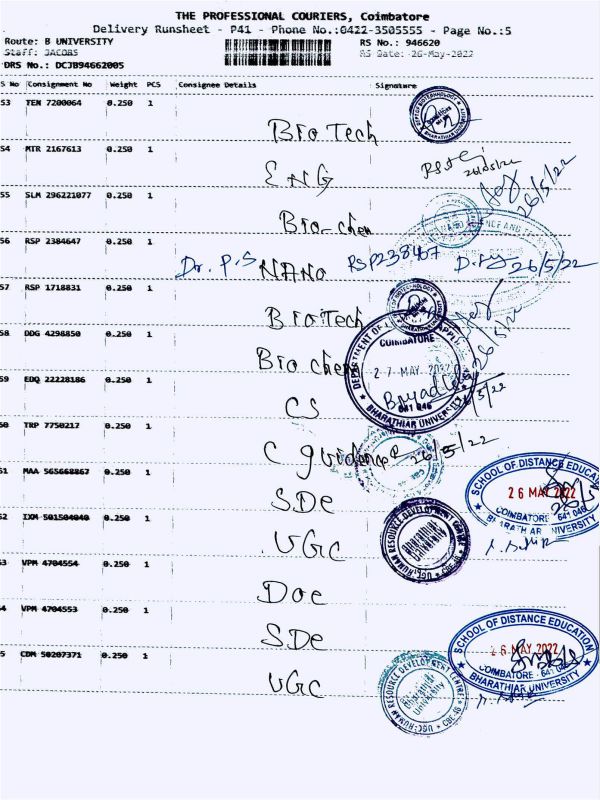 THE PROFESSIONAL COURIERS, Coimbatore
Delivery Runsheet - P41 - Phone No.:0422-3505555 - Page No.:5
Route: B UNIVERSITY RS No.: 946620
Staff: JACOBS RS Date: 26-May-2022
DRS No.: DCJB94662005
S No Consignment No Weight PCS Consignee Details Signature
53 TEN 7200064 0.250 1
Bio Tech
54 MTR 2167613 0.250 1
ENG 26/05/22
55 SLM 296221077 0.250 1
Bio-chem 26/5/22
56 RSP 2384647 0.250 1
Dr. P.S NANO RSP238467 26/5/22
57 RSP 1718831 0.250 1
BioTech
58 DDG 4298850 0.250 1
Bio chem 26/5/22
COIMBATORE
27 MAY 2022
BHARATHIAR UNIVERSITY
59 EDQ 22228186 0.250 1
CS
60 TRP 7750217 0.250 1
C guidance 26/5/22
61 MAA 565668867 0.250 1
SDE
SCHOOL OF DISTANCE EDUCATION
26 MAY 2022
COIMBATORE - 641 046
BHARATHIAR UNIVERSITY
62 IXM 501504040 0.250 1
UGC
UGC-HUMAN RESOURCE DEVELOPMENT CENTRE
Bharathiar University
63 VPM 4704554 0.250 1
Doe
64 VPM 4704553 0.250 1
SDE
SCHOOL OF DISTANCE EDUCATION
26 MAY 2022
COIMBATORE - 641 046
BHARATHIAR UNIVERSITY
5 CDM 50207371 0.250 1
UGC
UGC-HUMAN RESOURCE DEVELOPMENT CENTRE
Bharathiar University
CBE-46